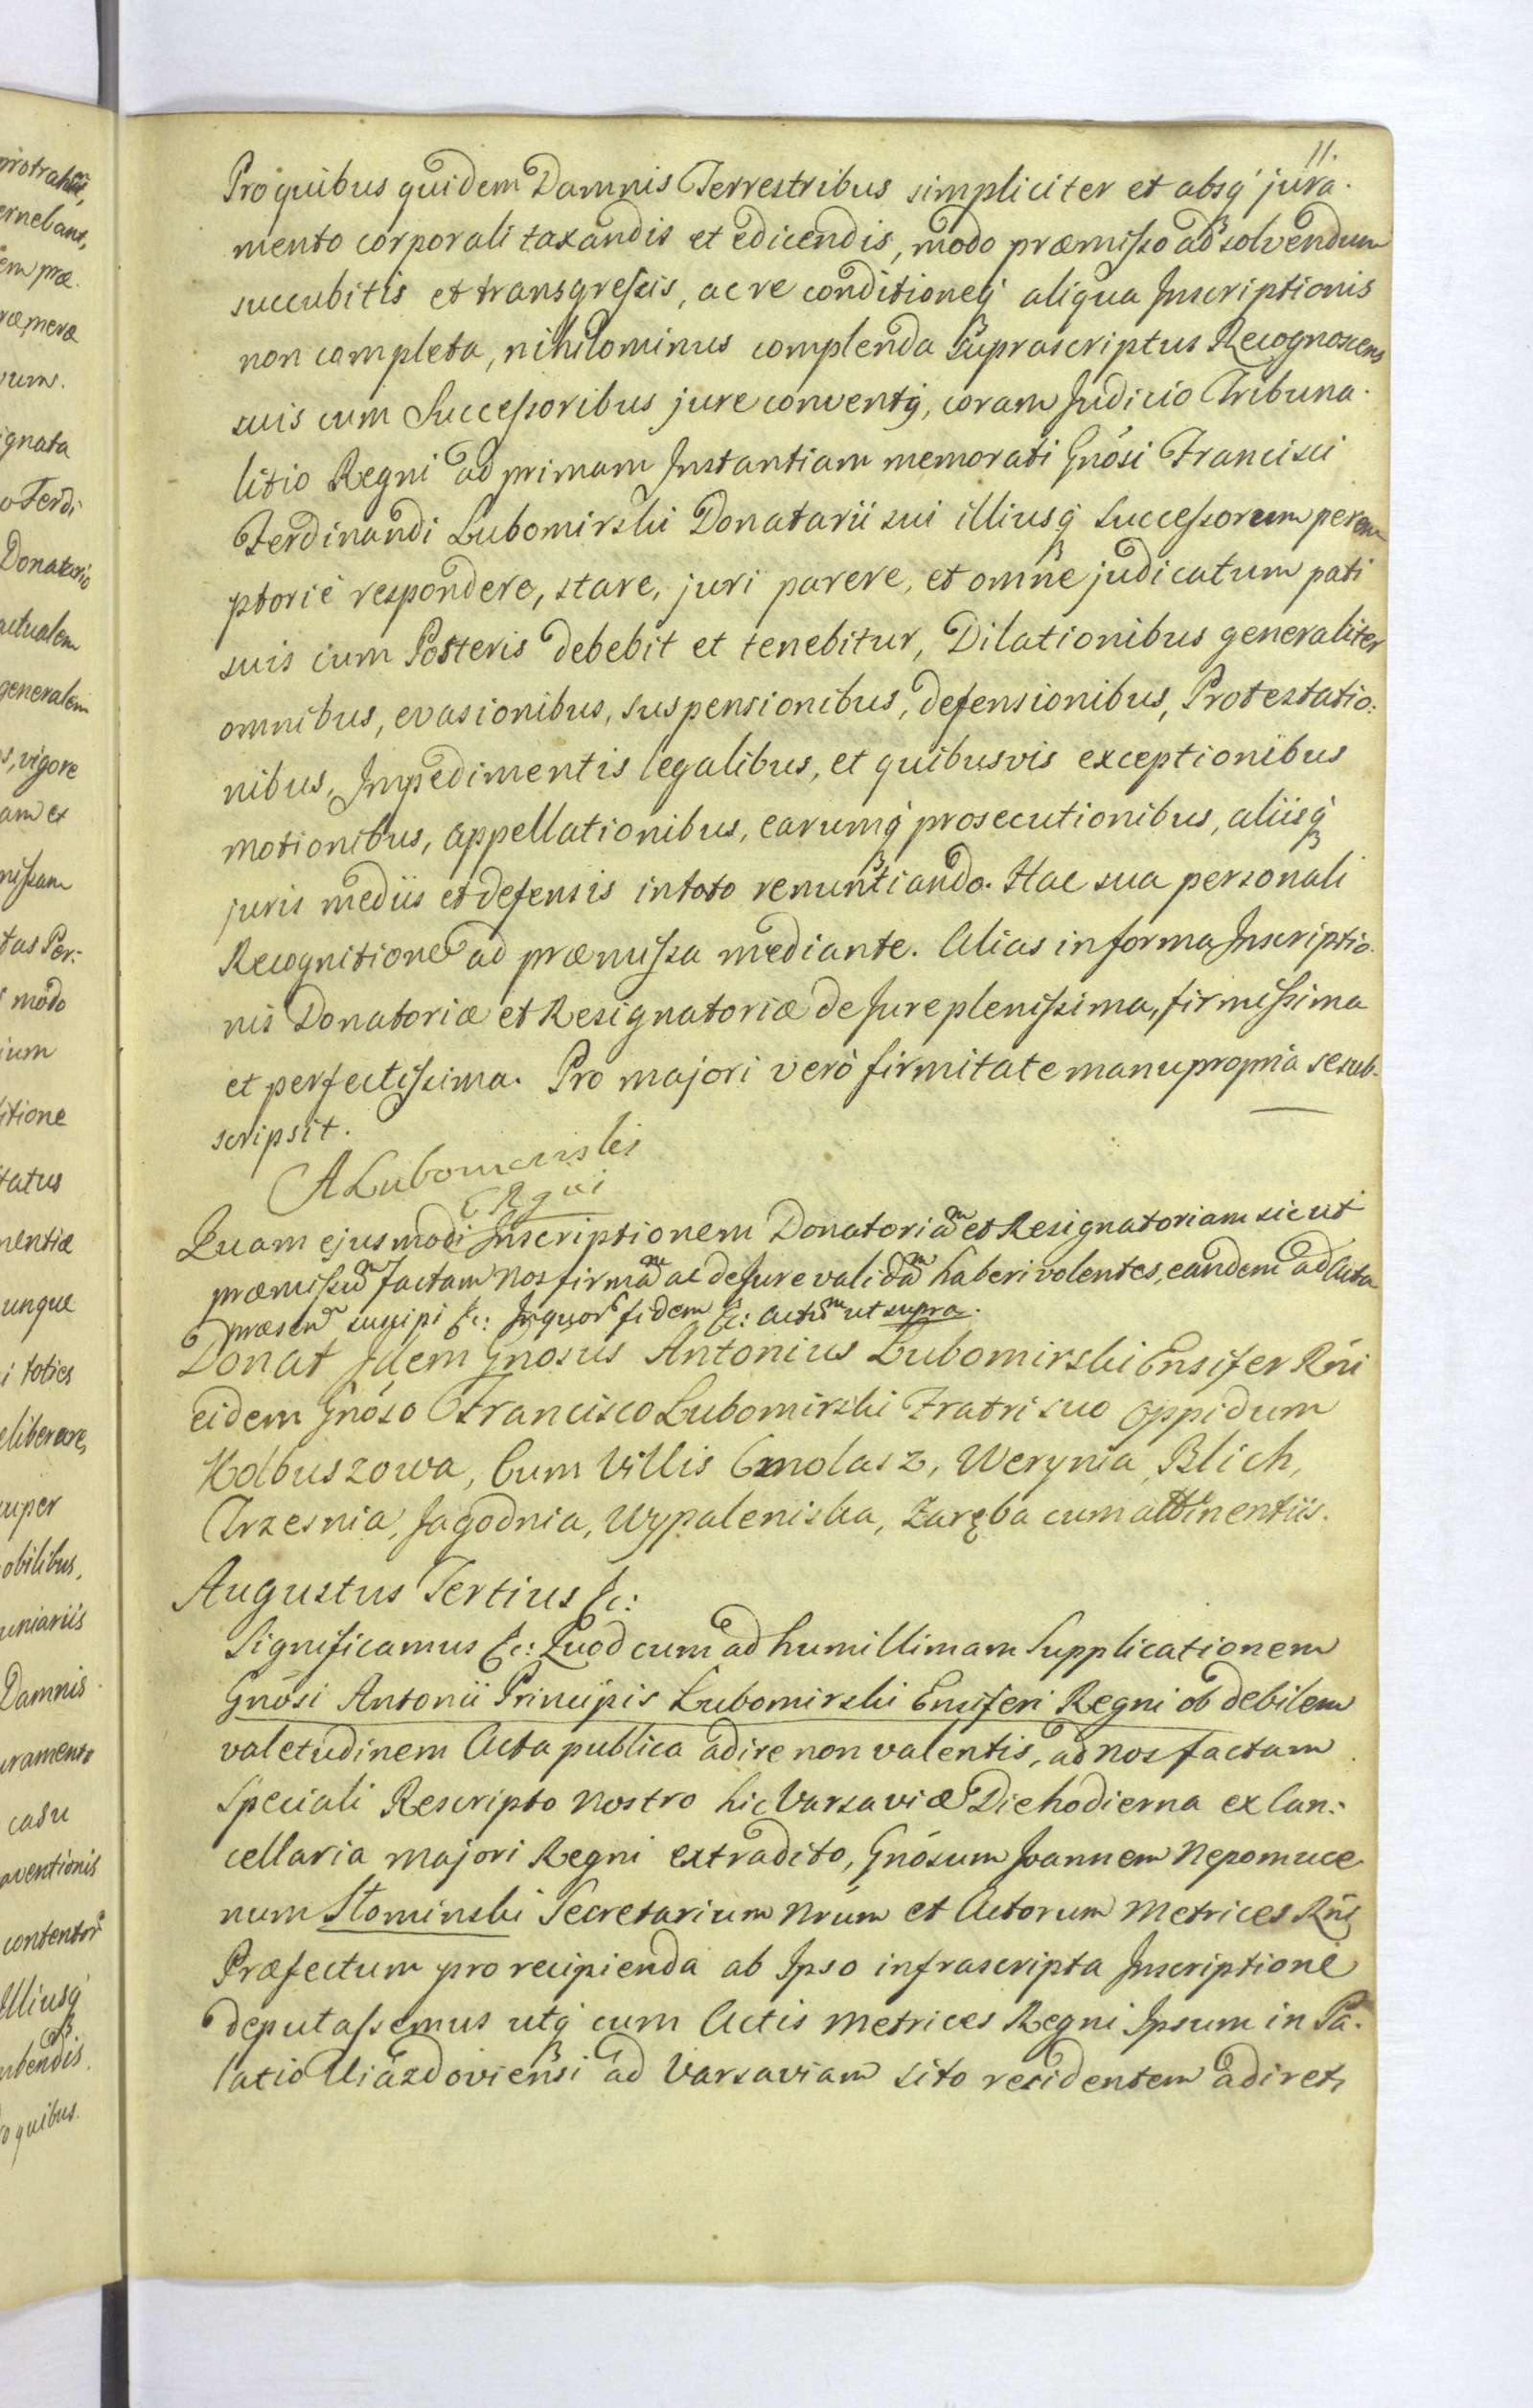 11.
Pro quibus quidem Damnis Terrestribus simpliciter et absq́ jura.
mento corporali taxandis et edicendis, modo præmisso ad solvendum
succubitis et transgressis, ac re conditioneq́ aliqua Inscriptionis
non completa, nihilominus complenda Suprascriptus Recognoscens
suis cum Successoribus jure conventq́, coram Judicio Tribuna.
litio Regni ad primam Instantiam memorati Gnősi Francisci
Ferdinandi Lubomirski Donatarii sui illiusq́ Successorum perem
ptoriè respondere, stare, juri parere, et omne judicatum pati
suis cum Posteris debebit et tenebitur, Dilationibus generaliter
omnibus, evasionibus, suspensionibus, defensionibus, Protestatio:
nibus, Impedimentis legalibus, et quibusvis exceptionibus
motionibus, appellationibus, earumq́ prosecutionibus, aliisq́
juris mediis et defensis in toto renuntiando. Hac sua personali
Recognitione ad præmissa mediante. Alias in forma Inscriptio.
nis Donatoriæ et Resignatoriæ de Jure plenissima, firmissima
et perfectissima. Pro majori verò firmitate manu propria se sub-
scripsit.
A Lubomirski
Quam ejusmodi Inscriptionem Donatoriam et Resignatoriam sicut
præmissum factam nos firmam ac de Jure validam haberi volentes, eandem ad Acta
præsen suscipi &c: In quor fidem &c: Actum ut supra.
Donat Idem Gnosus Antonius Lubomirski Ensifer Rńi
eidem Gnőso Francisco Lubomirski Fratri suo Oppidum
Kolbuszowa, Cum Villis Cmolasz, Werynia, Blich,
Trzesnia, Jagodnia, Wypaleniska, Zaręba cum attinentiis.
Augustus Tertius &c:
Significamus &c: Quod cum ad humillimam Supplicationem
Gnősi Antonii Principis Lubomirski Ensiferi Regni ob debilem
valetudinem Acta publica adire non valentis, ad nos factam
Speciali Rescripto Nostro hic Varsaviæ Die hodierna ex Can:
cellaria Majori Regni extradito, Gnősum Joannem Nepomuce
num Słominski Secretarium Nrum et Actorum Metrices Rńi
Præfectum pro recipienda ab Ipso infrascripta Inscriptione
deputassemus utq́ cum Actis Metrices Regni Ipsum in Pa.
latio Uiazdoviensi ad Varsaviam sito residentem adiret,